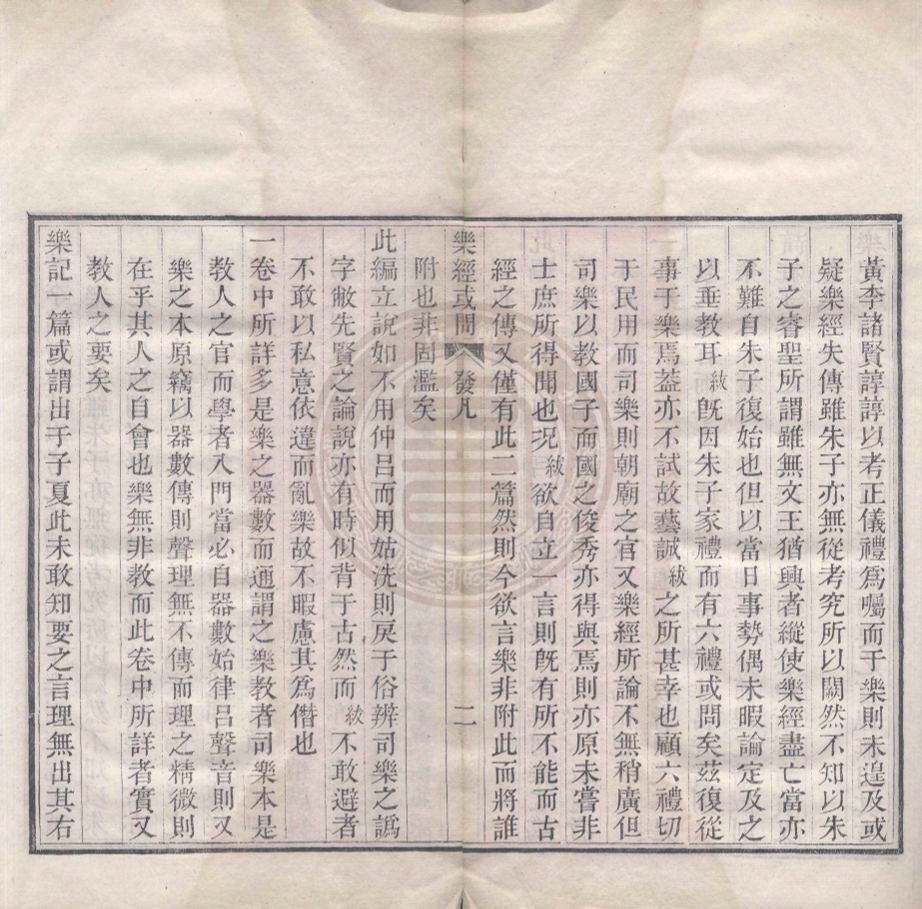 黃李諸賢諄諄以考正儀禮爲囑而于樂則未遑及或
疑樂經失傳雖朱子亦無從考究所以闕然不知以朱
子之睿聖所謂雖無文王猶興者縱使樂經盡亡當亦
不難自朱子復始也但以當日事勢偶未暇論定及之
以垂教耳紱旣因朱子家禮而有六禮或問矣茲復從
事于樂焉葢亦不試故藝誠紱之所甚幸也顧六禮切
于民用而司樂則朝廟之官又樂經所論不無稍廣但
司樂以教國子而國之俊秀亦得與焉則亦原未嘗非
士庶所得聞也况紱欲自立一言則旣有所不能而古
經之傳又僅有此二篇然則今欲言樂非附此而將誰
附也非固濫矣
樂經或問 發凡 二
此編立說如不用仲呂而用姑洗則戾于俗辨司樂之譌
字敝先賢之論說亦有時似背于古然而紱不敢避者
不敢以私意依違而亂樂故不暇慮其爲僭也
一卷中所詳多是樂之器數而通謂之樂教者司樂本是
教人之官而學者入門當必自器數始律呂聲音則又
樂之本原竊以器數傳則聲理無不傳而理之精微則
在乎其人之自會也樂無非教而此卷中所詳者實又
教人之要矣
樂記一篇或謂出于子夏此未敢知要之言理無出其右